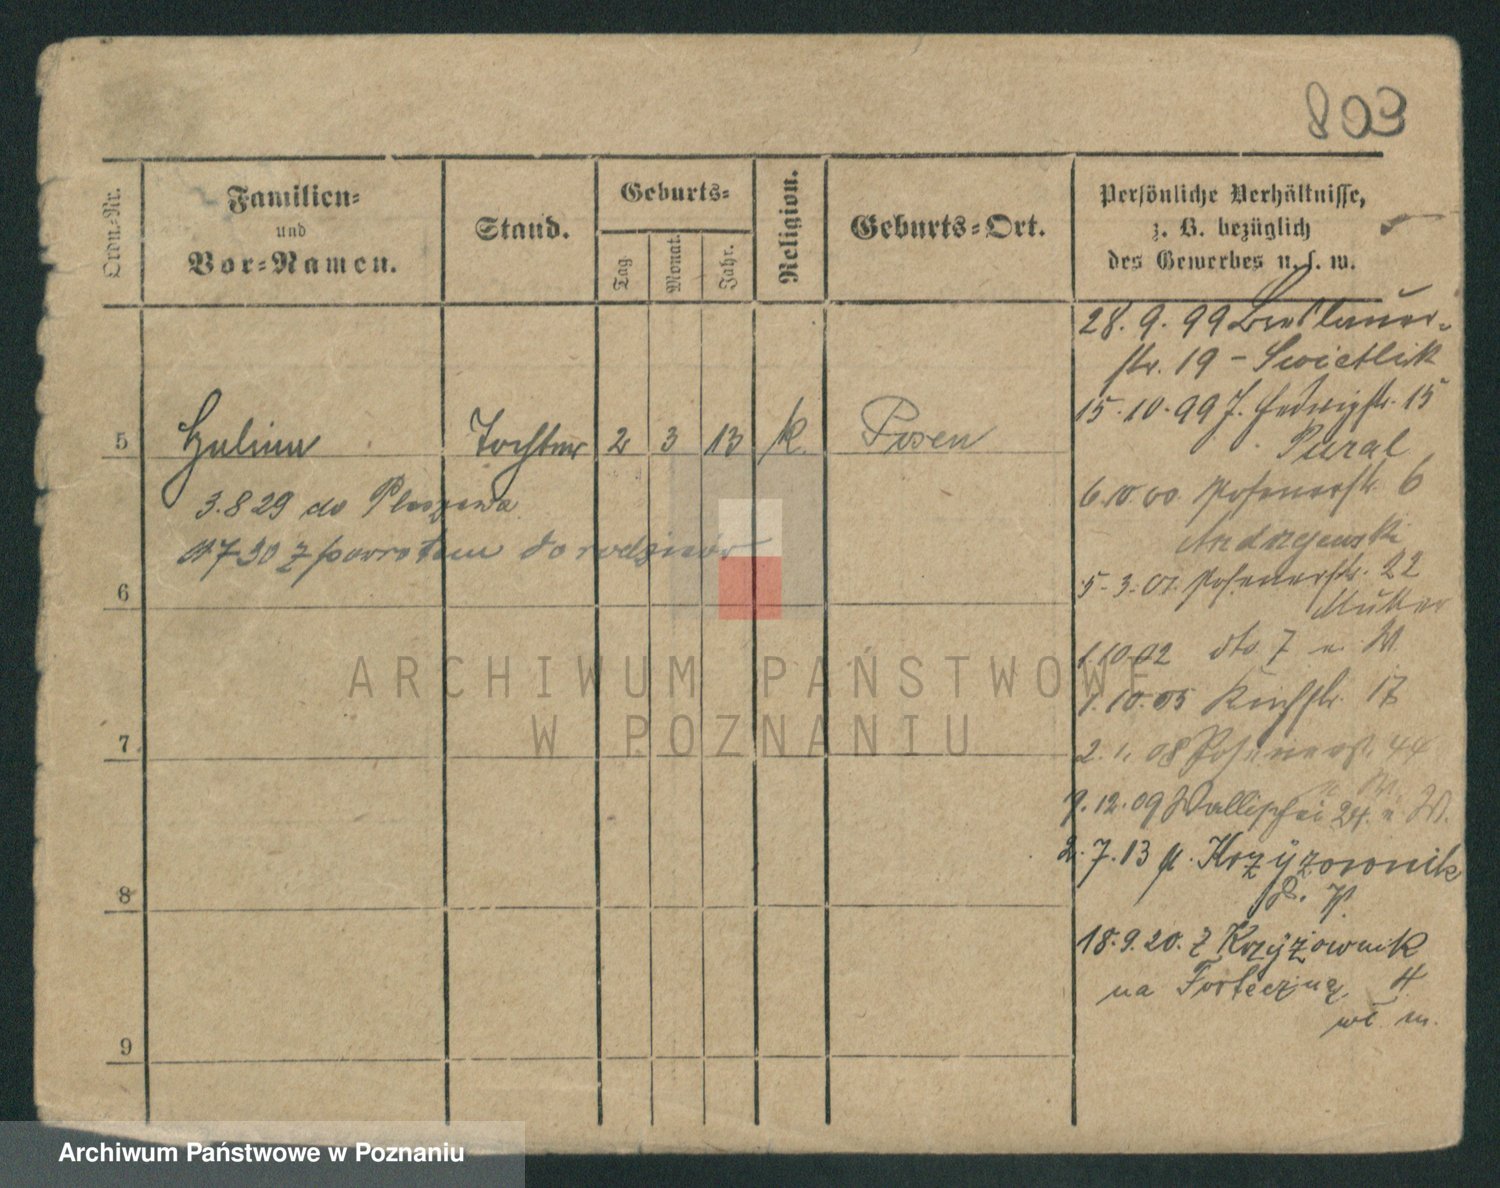 803
Ordn.-Nr.
Familien-
und
Vor-Namen.
Stand.
Geburts-
Tag.
Monat.
Jahr.
Religion.
Geburts-Ort.
Persönliche Verhältnisse,
z. B. bezüglich
des Gewerbes u. s. w.
28. 9. 99 Breslauer-
str. 19 – Swietlik
15. 10. 99 J. Hedwigstr. 15
5 Halina Tochter 2 3 13 k. Posen
Pural
3. 8 29 do Pleszewa
6. 10. 00. Posenerstr. 6
7 30 z powrotem do rodziców
Andrzejewski
5. 3. 01. Posenerstr. 22
6
Müller
1. 10. 02 dto. 7 n. W.
ARCHIWUM PAŃSTWOWE
1. 10. 05 Kirchstr. 17
W POZNANIU
7
2. 1. 08 Posenerst. 44
n. W.
9. 12. 09 Wallischei 24. n. W.
2. 7. 13 Krzyżownik
8
18. 9. 20. z Krzyżownik
na Forteczną 4
w m.
9
Archiwum Państwowe w Poznaniu